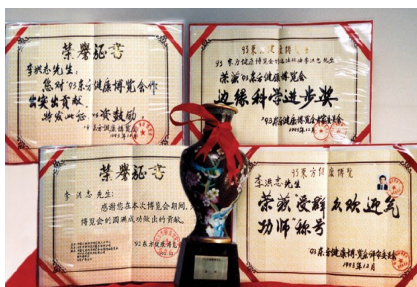 荣誉证书
李洪志先生:
您对'93东方健康博览会作
出突出贡献,
特发此证,以资鼓励
'93东方健康博览会
93东方健康博览会
李洪志先生
荣获'93东方健康博览会
边缘科学进步奖
'93东方健康博览会
1993年12月
荣誉证书
李洪志先生:
感谢您在本次博览会期间,为
博览会的圆满成功做出的贡献。
'93东方健康博览会
93东方健康博览
李洪志先生
荣获受群众欢迎气
功师"称号
'93东方健康博览会评审委员会
1993年12月